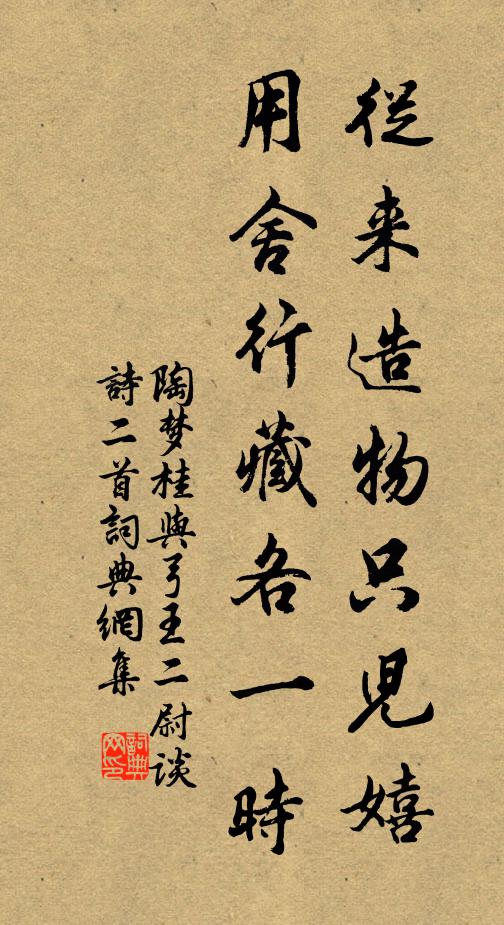 從来造物只児嬉
用舍行藏各一時
陶梦桂與弓王二尉谈
詩二首詞典網集
詞典
网印